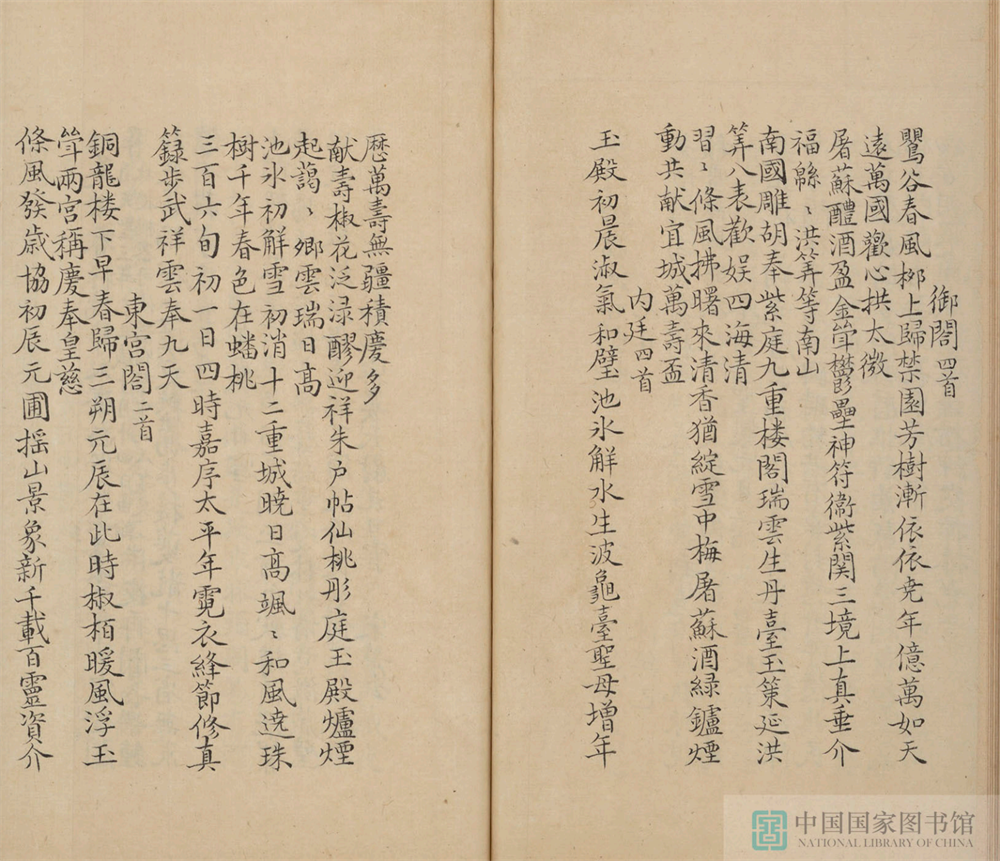 御閣四首
鸎谷春風栁上歸禁園芳樹漸依依尭年億萬如天
遠萬國歡心拱太微
屠蘇醴酒盈金斝欝壘神符衞紫関三境上真垂介
福緜〻洪筭等南山
南國雕胡奉紫庭九重楼閣瑞雲生丹臺玉策延洪
筭八表歡娱四海清
習〻條風拂曙來清香猶綻雪中梅屠蘇酒緑鑪煙
動共献宜城萬壽盃
内廷四首
玉殿初晨淑氣和璧池氷解水生波龜臺聖母增年
厯萬壽無疆積慶多
献壽椒花泛渌醪迎祥朱户帖仙桃彤庭玉殿爐煙
起藹〻鄉雲瑞日高
池氷初解雪初消十二重城曉日高颯〻和風遶珠
樹千年春色在蟠桃
三百六旬初一日四時嘉序太平年霓衣絳節修真
籙步武祥雲奉九天
東宮閤二首
銅龍楼下早春歸三朔元辰在此時椒栢暖風浮玉
斝兩宮稱慶奉皇慈
條風發歳協初辰元圃揺山景象新千載百靈資介
中国国家图书馆
NATIONAL LIBRARY OF CHINA